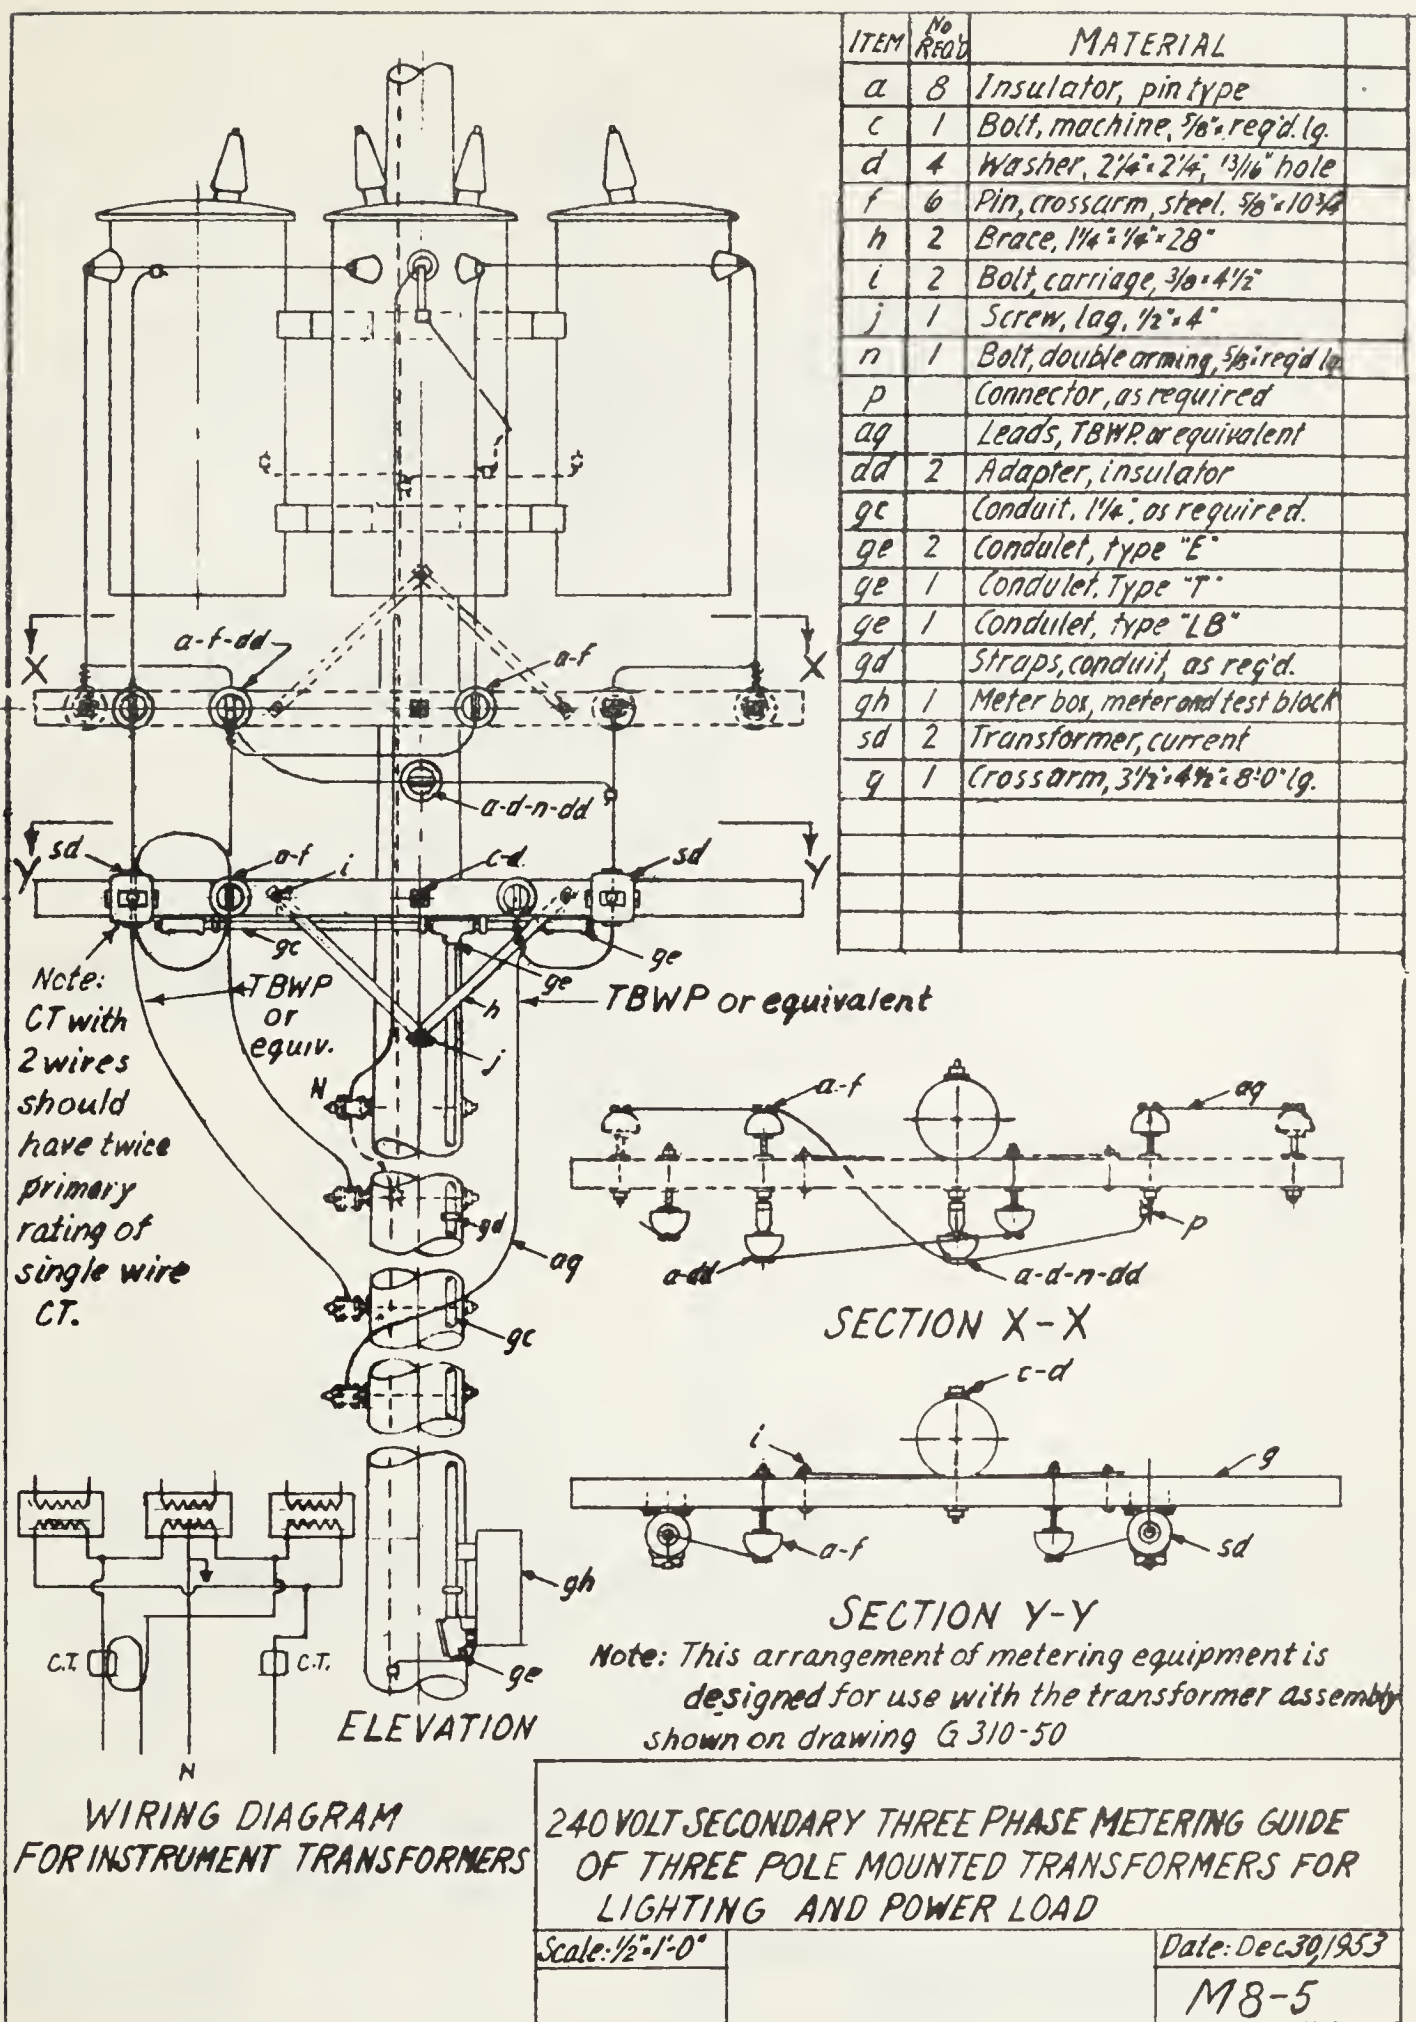 ITEM No REQ'D MATERIAL
a 8 Insulator, pin type
c 1 Bolt, machine, 5/8" x req'd. lg.
d 4 Washer, 2 1/4" x 2 1/4", 13/16" hole
f 6 Pin, crossarm, steel, 5/8" x 10 3/4"
h 2 Brace, 1 1/4" x 1/4" x 28"
i 2 Bolt, carriage, 3/8 x 4 1/2"
j 1 Screw, lag, 1/2" x 4"
n 1 Bolt, double arming, 5/8" x req'd lg.
p Connector, as required
aq Leads, TBWP. or equivalent
dd 2 Adapter, insulator
gc Conduit, 1 1/4", as required.
ge 2 Condulet, type "E"
ge 1 Condulet, Type "T"
ge 1 Condulet, type "LB"
gd Straps, conduit, as req'd.
gh 1 Meter box, meter and test block
sd 2 Transformer, current
g 1 Crossarm, 3 1/2" x 4 1/2" x 8'0" lg.
a-f-dd
a-f
X
X
a-d-n-dd
Y
sd
a-f
i
c-d
sd
Y
gc
ge
ge
h
j
Note:
CT with
2 wires
should
have twice
primary
rating of
single wire
CT.
TBWP
or
equiv.
TBWP or equivalent
N
gd
aq
gc
gh
ge
ELEVATION
a-f
aq
p
a-dd
a-d-n-dd
SECTION X-X
c-d
i
g
a-f
sd
SECTION Y-Y
Note: This arrangement of metering equipment is
designed for use with the transformer assembly
shown on drawing G 310-50
C.T.
C.T.
N
WIRING DIAGRAM
FOR INSTRUMENT TRANSFORMERS
240 VOLT SECONDARY THREE PHASE METERING GUIDE
OF THREE POLE MOUNTED TRANSFORMERS FOR
LIGHTING AND POWER LOAD
Scale: 1/2"=1'-0"
Date: Dec 30, 1953
M8-5